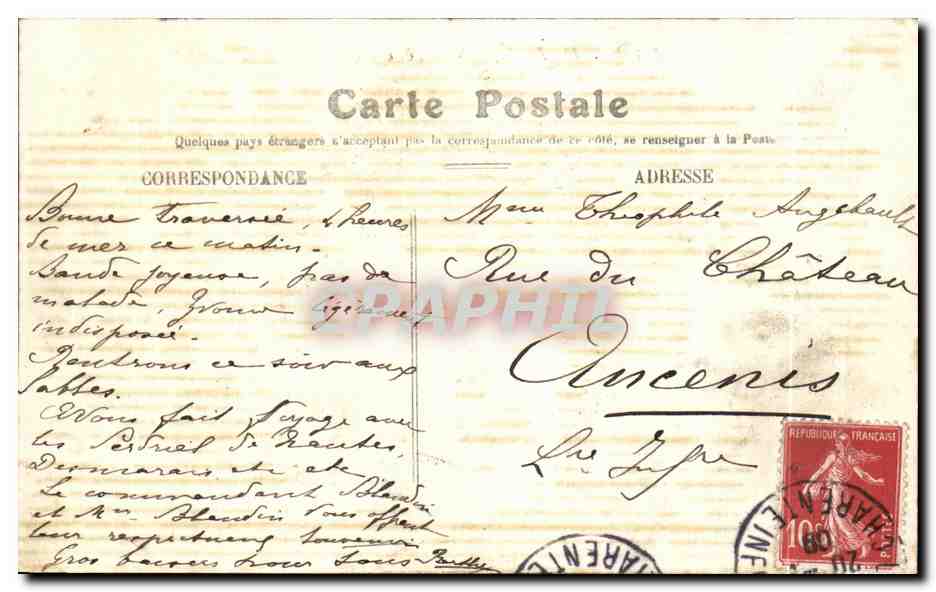 Carte Postale
Quelques pays étrangers n'acceptant pas la correspondance de ce côté, se renseigner à la Poste
CORRESPONDANCE
Bonne traversée, 4 heures
de mer ce matin.
Bande joyeuse, pas de
malade, Yvonne légèrement
indisposée.
Rentrons ce soir aux
Sables.
Avons fait voyage avec
les Perdriel de Nantes,
Desmarais etc etc
Le commandant Blandin
et Mme Blandin vous offrent
leur respectueux souvenir
Gros baisers pour tous
ADRESSE
Mme Théophile Angebault
Rue du Château
Ancenis
Lre Infre
CPAPHIL
REPUBLIQUE FRANÇAISE
10c
POSTES
CHARENTE INF
20
09
CHARENTE